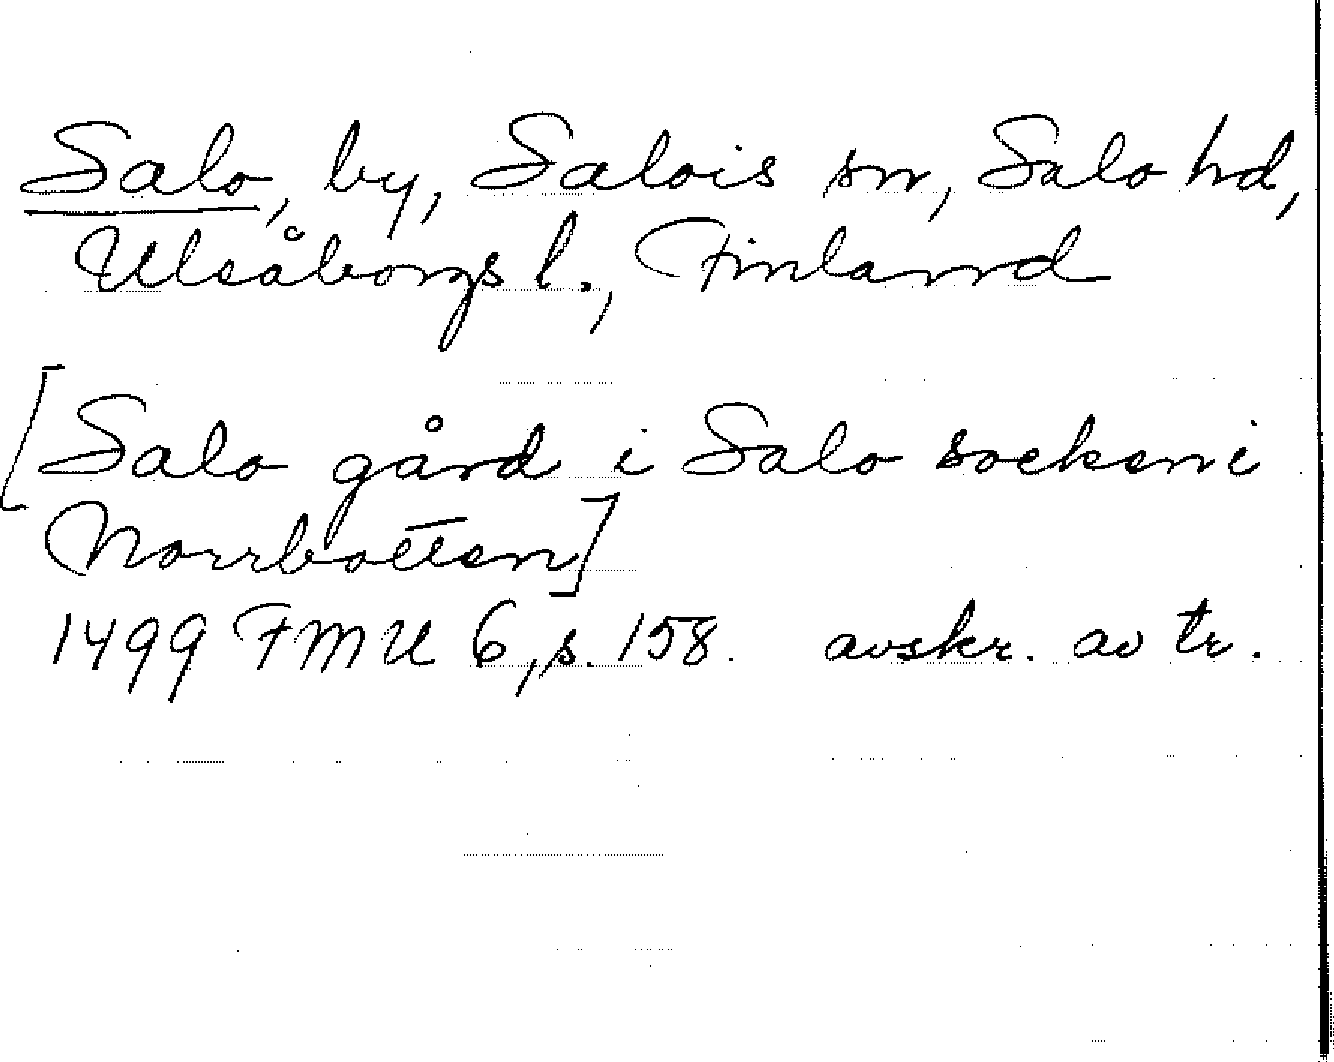 Salo, by, Salois sn, Salo hd,
Uleåborgs l., Finland
[Salo gård i Salo socken i
Norrbotten]
1499 FMU 6, s. 158. avskr. av tr.